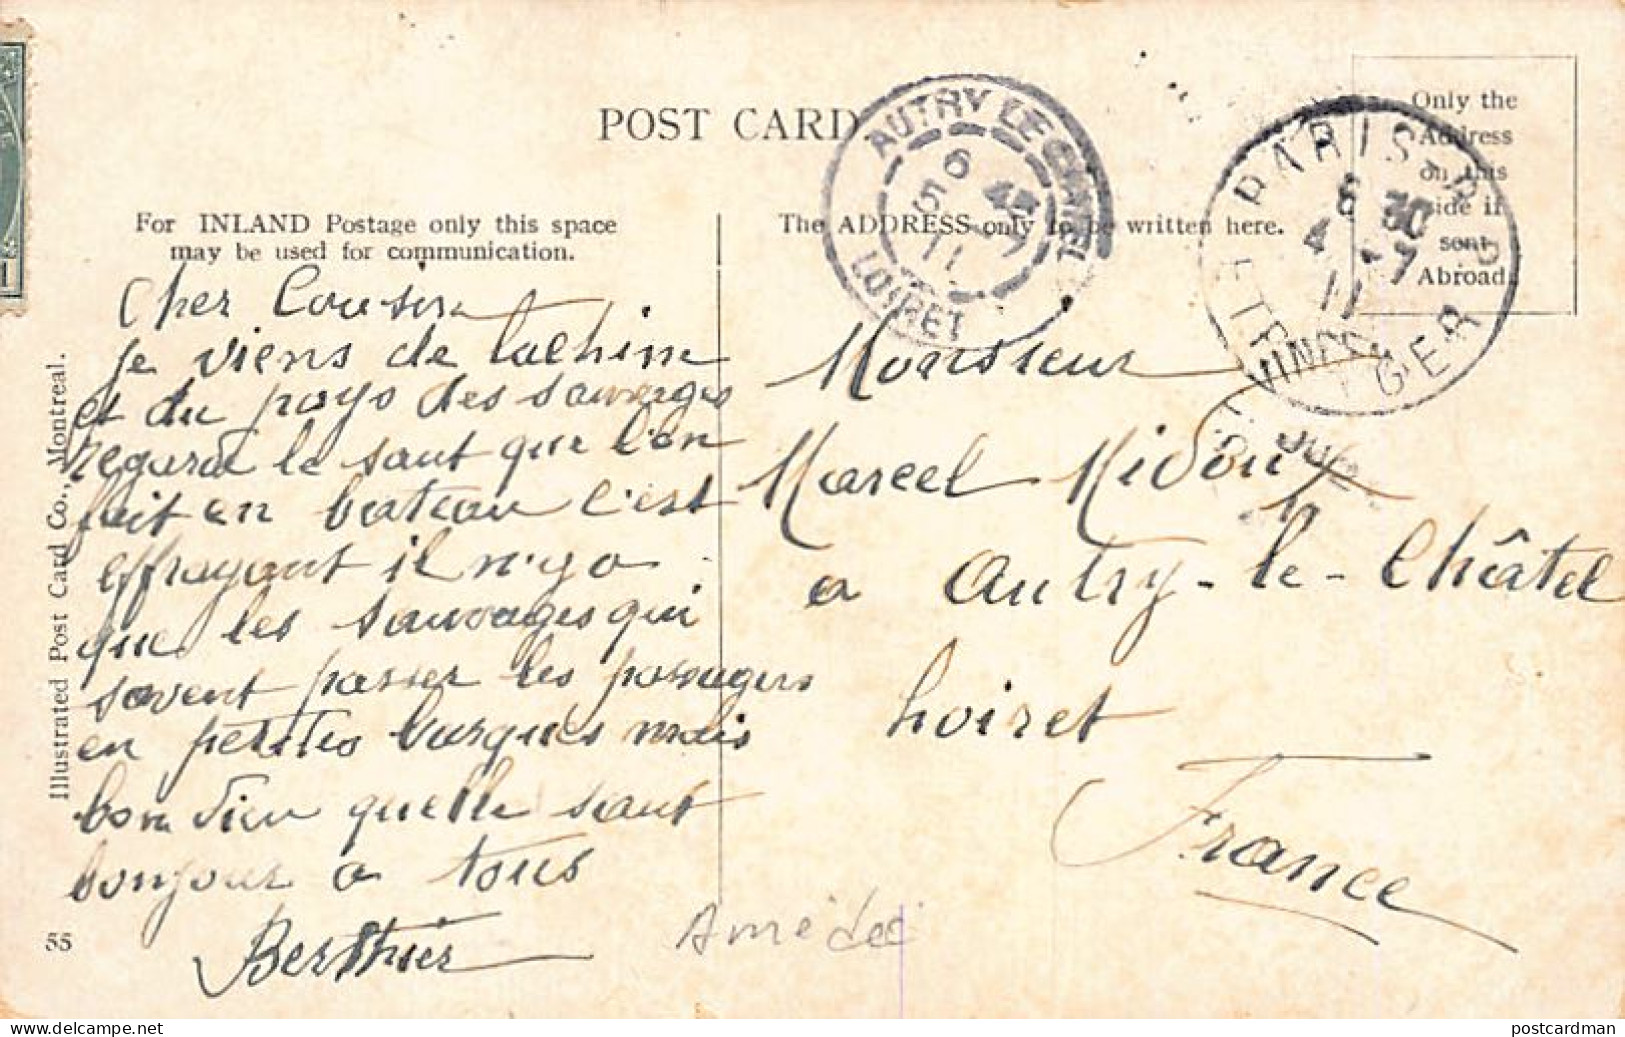 POST CARD
For INLAND Postage only this space
may be used for communication.
The ADDRESS only to be written here.
Only the
Address
on this
side if
sent
Abroad
AUTRY LE CHATEL
LOIRET
6 45
5 7
11
PARIS
6 30
4 7
11
ETRANGER
Cher Cousin
je viens de Lachine
et du pays des sauvages
regarde le saut que l'on
fait en bateau c'est
effrayant il n'y a
que les sauvages qui
savent passer les passagers
en petites barques mais
bon Dieu quelle saut
bonjour a tous
Berthier
Monsieur
Marcel Midou
a Autry-le-Châtel
Loiret
France
Amédée
Illustrated Post Card Co., Montreal.
55
www.delcampe.net
postcardman